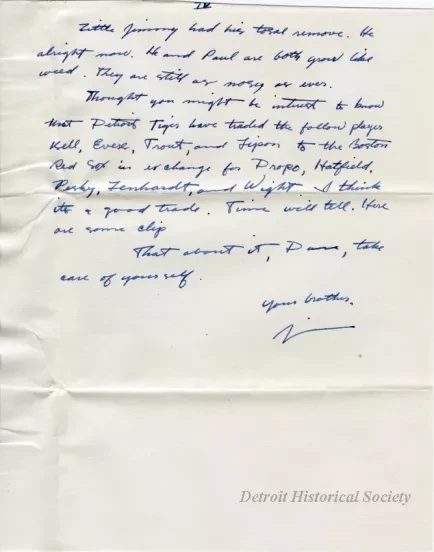 IV
Little Jimmy had his tosal remove. He
alright now. He and Paul are both grow like
weed. They are still as nosy as ever.
Thought you might be interest to know
that Detroit Tiges have traded the follow player
Kell, Evese, Trout, and Lipon to the Boston
Red Sox in exchange for Dropo, Hatfield,
Pesky, Lenhardt, and Wight. I think
its a good trade. Time will tell. Here
are some clip
That about it, Dave, take
care of yourself.
Your brother,
Detroit Historical Society